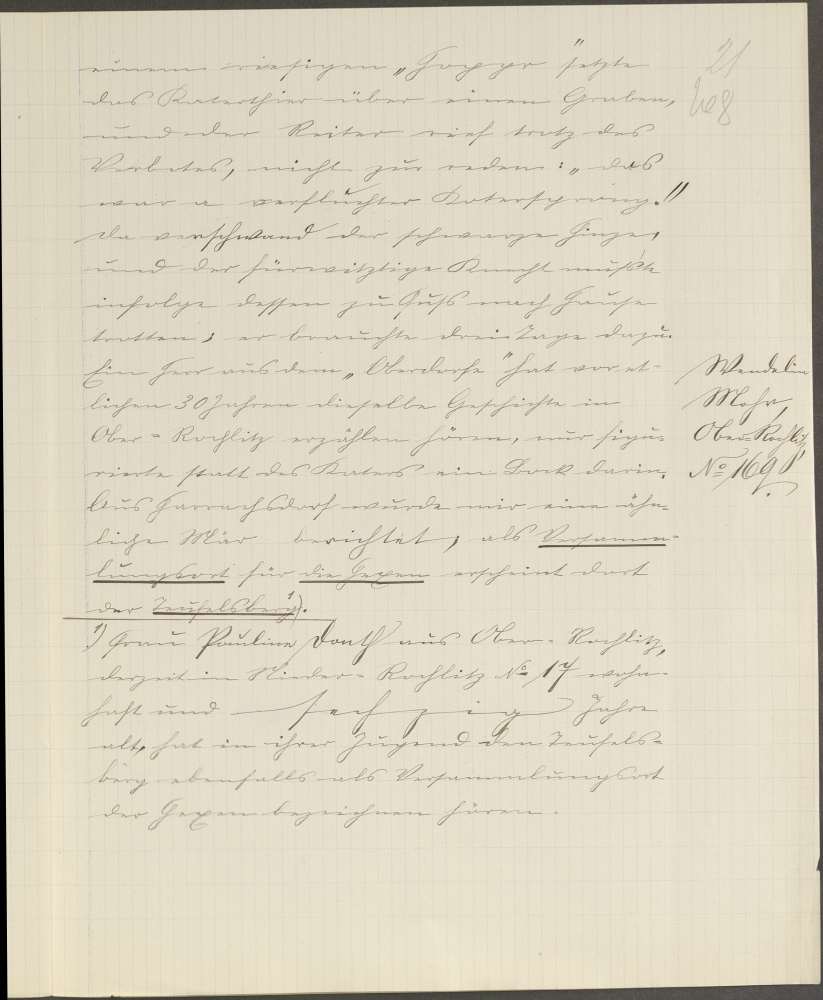 21
einem riesigen „Hopps" setzte
das Katerthier über einen Graben,
und der Reiter rief trotz des
Verbotes, nicht zu reden: „das
war a verfluchter Katersprung!"
Da verschwand der schwarze Hinze,
und der fürwitzige Knecht mußte
infolge dessen zu Fuß nach Hause
trotten; er brauchte drei Tage dazu.
Ein Herr aus dem „Oberdorfe" hat vor et-
lichen 30 Jahren dieselbe Geschichte in
Ober-Rochlitz erzählen hören, nur figu-
rierte statt des Katers ein Bock darin.
Aus Harrachsdorf wurde mir eine ähn-
liche Mär berichtet; als Versamm-
lungsort für die Hexen erscheint dort
der Teufelsberg 1).
Wendelin
Mohr,
Ober-Rochlitz,
No 169.
1) Frau Pauline Donth aus Ober-Rochlitz,
derzeit in Nieder-Rochlitz No 17 wohn-
haft und sechzig Jahre
alt, hat in ihrer Jugend den Teufels-
berg ebenfalls als Versammlungsort
der Hexen bezeichnen hören.